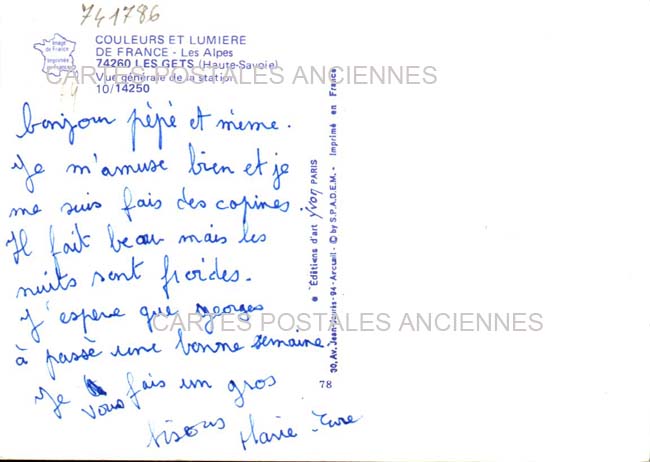 741786
Image
de France
Imprimée
en France
COULEURS ET LUMIERE
DE FRANCE - Les Alpes
74260 LES GETS (Haute-Savoie)
Vue générale de la station
10/14250
CARTES POSTALES ANCIENNES
bonjour pèpé et mème.
Je m'amuse bien et je
me suis fais des copines.
Il fait beau mais les
nuits sont froides.
J'espère que georges
à passè une bonne semaine.
Je vous fais un gros
bisous Marie-Eve
CARTES POSTALES ANCIENNES
"Éditions d'art yvon PARIS
30, Av. Jean-Jaurès-94-Arcueil - © by S.P.A.D.E.M. - Imprimé en France
78